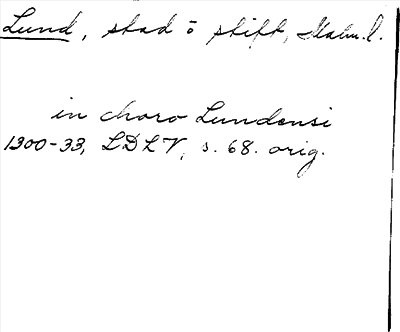 Lund, stad o stift, Malm.l.
in choro Lundensi
1300-33, LDLV, s. 68. orig.